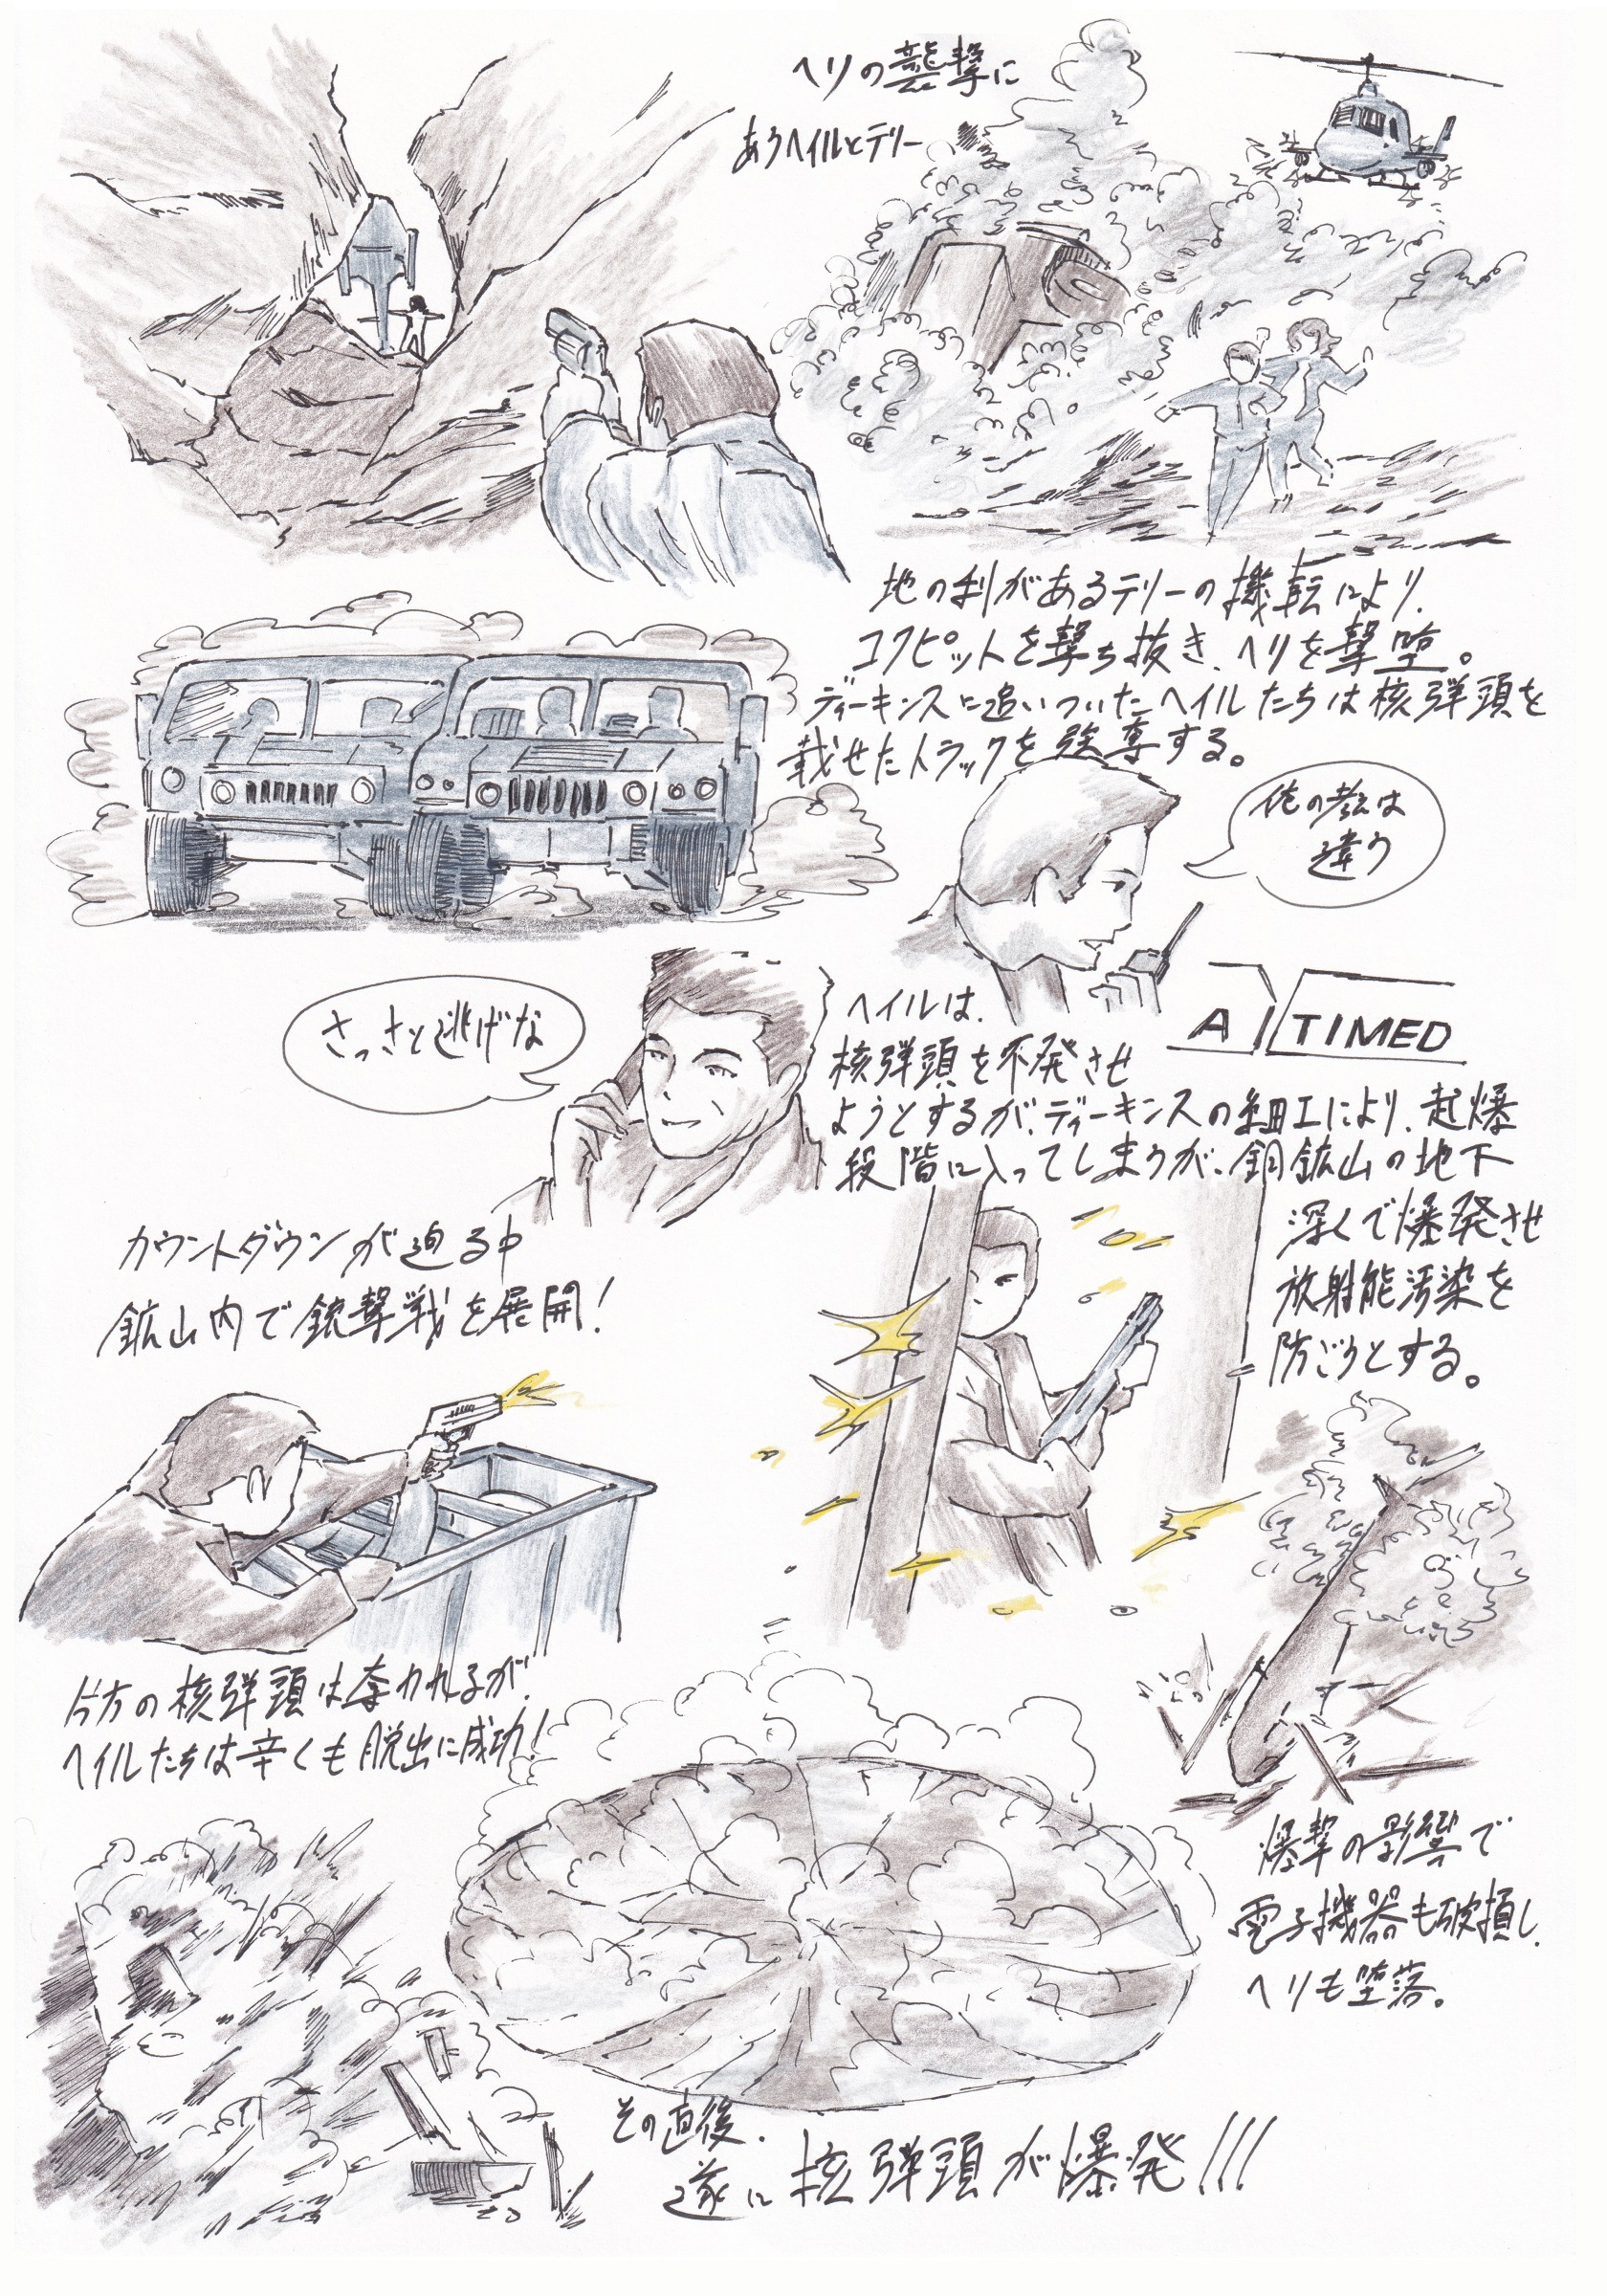 ヘリの襲撃に
あうヘイルとテリー
地の利があるテリーの機転により、
コクピットを撃ち抜き、ヘリを撃墜。
ディーキンスに追いついたヘイルたちは核弾頭を
載せたトラックを強奪する。
俺の考えは
違う
さっさと逃げな
A TIMED
ヘイルは、
核弾頭を不発させ
ようとするが、ディーキンスの細工により、起爆
段階に入ってしまうが、銅鉱山の地下
深くで爆発させ
放射能汚染を
防ごうとする。
カウントダウンが迫る中
鉱山内で銃撃戦を展開!
片方の核弾頭は奪われるが、
ヘイルたちは辛くも脱出に成功!
爆撃の影響で
電子機器も破損し、
ヘリも墜落。
その直後、
遂に核弾頭が爆発!!!